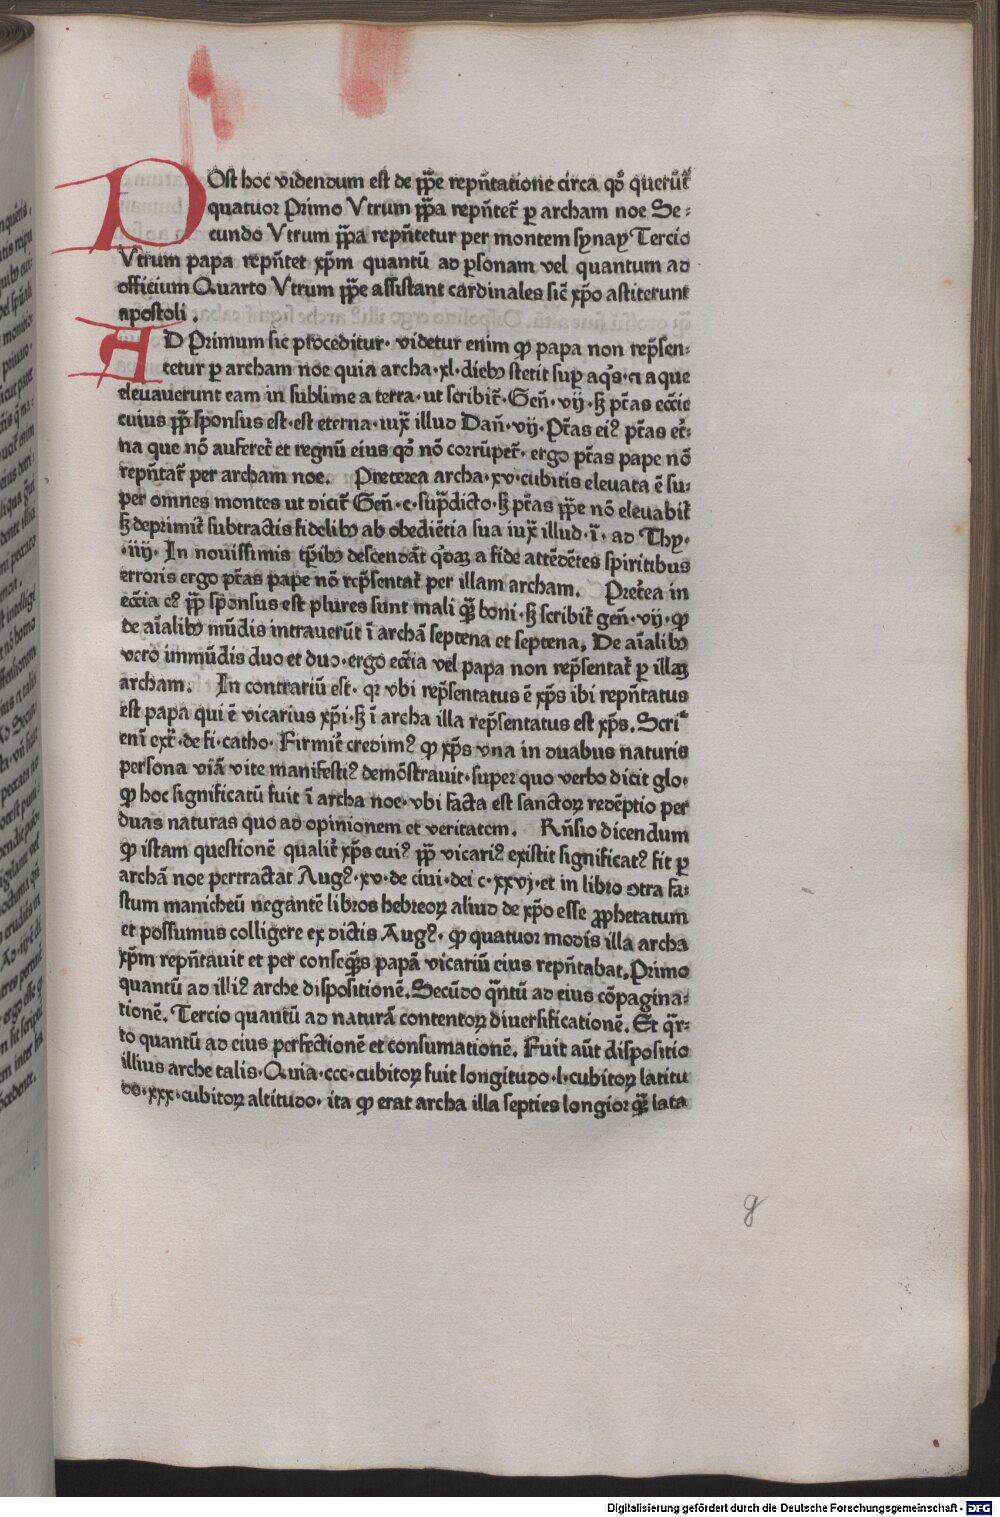 POst hoc videndum est de pp̄e rep̄ñtatione circa qð querūt᷑
quatuor Primo Vtrum pp̄a rep̄ñtet᷑ ꝑ archam noe Se⸗
cundo Vtrum pp̄a rep̄ñtetur per montem synay Tercio
Vtrum papa rep̄ñtet xp̄m quantū ad ꝑsonam vel quantum ad
officium Quarto Vtrum pp̄e assistant cardinales sic̄ xp̄o astiterunt
apostoli .
AD Primum sic proceditur· videtur enim ꝙ papa non rep̄sen⸗
tetur ꝑ archam noe quia archa·xl·dieb9 stetit sup̱ aq̄s·⁊ aque
eleuauerunt eam in sublime a terra·ut scribit᷑·Geñ·vij·ꜩ ptās ecc̄ie
cuius pp̄ sponsus est·est eterna·iux̄ illud Dañ·vij·Ptās ei9 ptās et᷑⸗
na que nō auferet᷑ et regnū eius qð nō corrūpet᷑·ergo ptās pape nō
rep̄ñtat᷑ per archam noe. Preterea archa·xv·cubitis eleuata ē su⸗
per omnes montes ut dicit᷑ Geñ·c·sup̄dicto·ꜩ ptās pp̄e nō eleuabit᷑
ꜩ deprimit᷑ subtractis fidelib9 ab obediētia sua iux̄ illud·ī·ad Thy·
·iiij·In nouissimis tp̄ib9 descendāt q̄daꝫ a fide attēdētes spiritibus
erroris ergo ptās pape nō rep̄sentat᷑ per illam archam. Pret᷑ea in
ecc̄ia c9 pp̄ sponsus est plures sunt mali q̄ꝫ boni·ꜩ scribit᷑ geñ·vij·ꝙ
de aīalib9 mūdis intrauerūt ī archā septena et septena, De aīalib9
vero immūdis duo et duo·ergo ecc̄ia vel papa non rep̄sentat᷑ ꝑ illaꝫ
archam. In contrariū est· qr vbi rep̄sentatus ē xp̄s ibi rep̄ñtatus
est papa qui ē vicarius xp̄i·ꜩ ī archa illa rep̄sentatus est xp̄s. Scri⸗
enī ext᷑·de fi·catho· Firmit᷑ credim9 ꝙ xp̄s vna in duabus naturis
persona viā vite manifesti9 demōstrauit·super quo verbo dicit glo·
ꝙ hoc significatū fuit ī archa noe·vbi facta est sanctoꝝ redēptio per
duas naturas quo ad opinionem et veritatem. Rñsio dicendum
ꝙ istam questionē qualit᷑ xp̄s cui9 pp̄ vicari9 existit significat9 sit ꝑ
archā noe pertractat Aug9·xv·de ciui·dei c·xxvj·et in libro ↄtra fa⸗
stum manicheū negantē libros hebreoꝝ aliud de xp̄o esse ꝓphetatum
et possumus colligere ex dictis Aug9· ꝙ quatuor modis illa archa
xp̄m rep̄ñtauit et per conseq̄ꝫs papā vicariū eius rep̄ñtabat,Primo
quantū ad illi9 arche dispositionē.Secūdo q̄ntū ad eius cōpagina⸗
tionē, Tercio quantū ad naturā contentoꝝ diuersificationē. Et q̄r⸗
to quantū ad eius perfectionē et consumationē. Fuit aūt dispositio
illius arche talis·Quia·ccc·cubitoꝝ fuit longitudo·l·cubitoꝝ latitu
do·xxx·cubitoꝝ altitudo· ita ꝙ erat archa illa septies longior q̄ꝫ lata
g
Digitalisierung gefördert durch die Deutsche Forschungsgemeinschaft - DFG